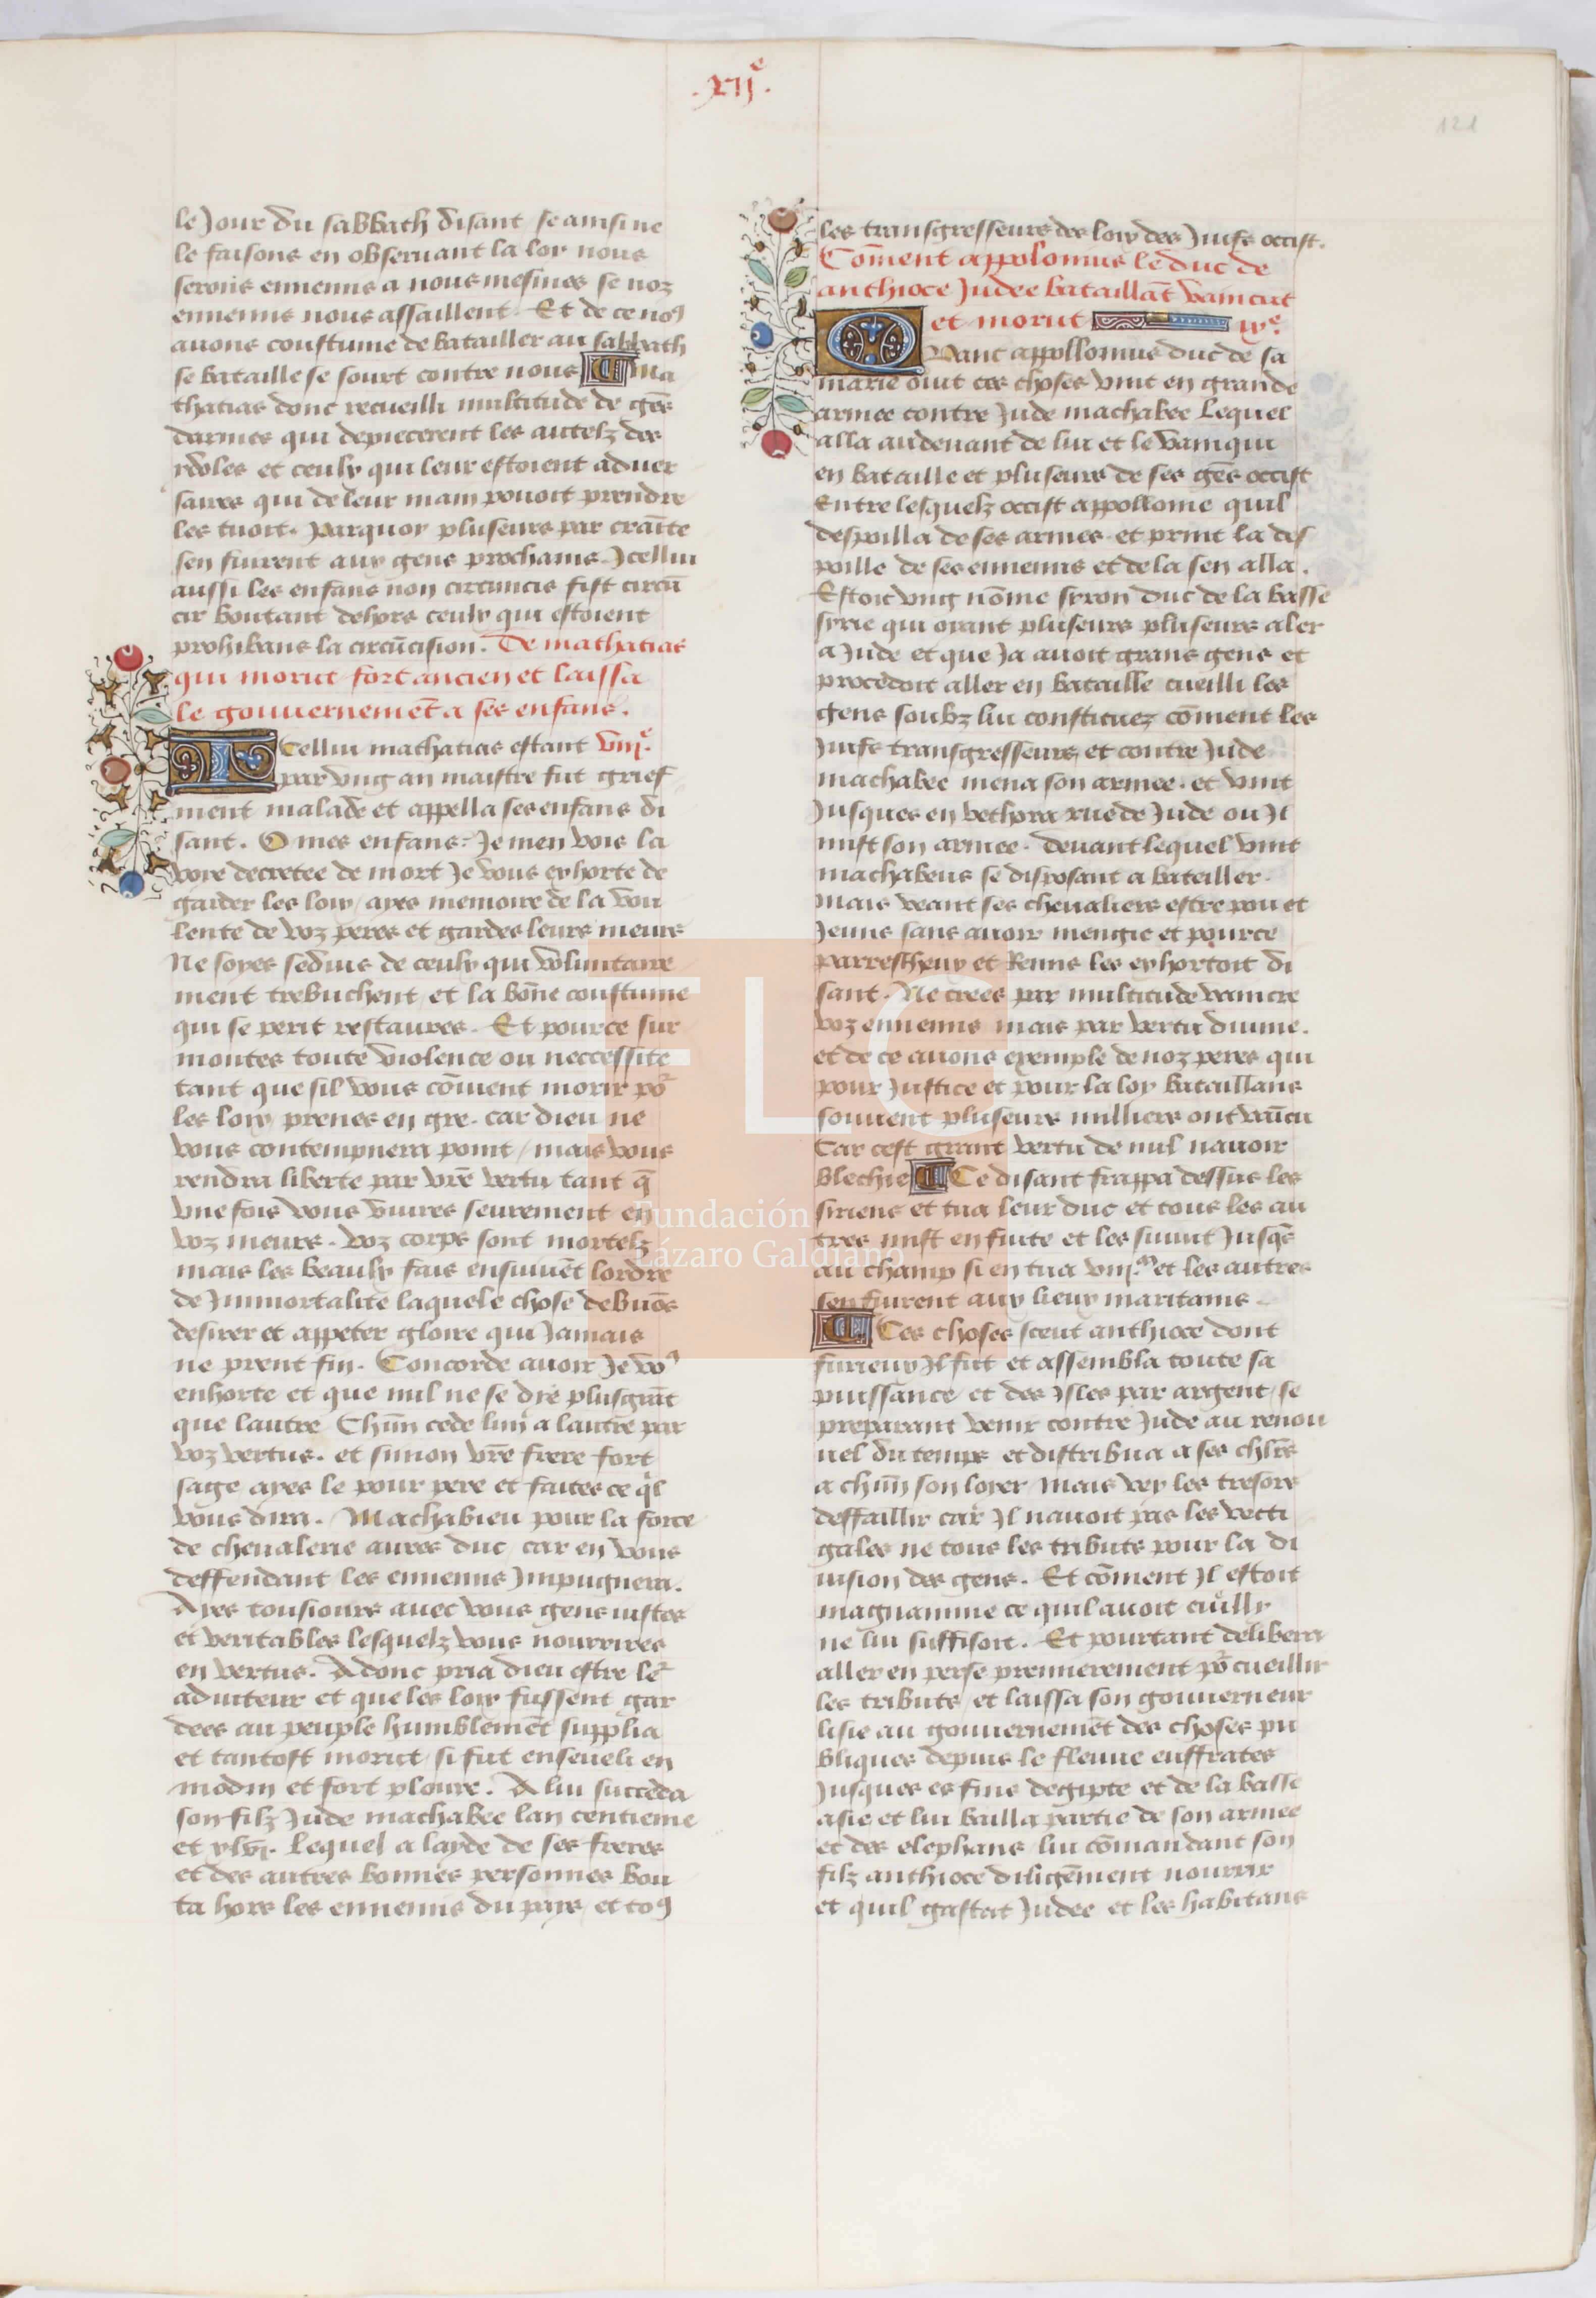 .xii^e.
121
le Jour du sabbath disant se ainsi ne
le faisons en observant la loy nous
serons ennemis a nous mesmes se noz
ennemis nous assaillent. Et de ce no9
avons coustume de batailler au sabbath
se bataille se sourt contre nous Ma
thatias donc recueilli multitude de ge͂s
darmes qui depiecerent les autelz des
ydoles et ceulx qui leur estoient adver
saires qui de leur main pouoit prendre
les tuoit. Parquoy pluseurs par crai͂te
sen fuirent aux gens prochains. Icellui
aussi les enfans non circuncis fist circu͂
cir boutant dehors ceulx qui estoient
prohibans la circu͂cision. De mathatias
qui morut fort ancien et laissa
le gouverneme͂t a ses enfans.
ICellui mathatias estant viii^e.
par ung an maistre fut grief
ment malade et appella ses enfans di
sant. O mes enfans Je men vois la
voye decretee de mort Je vous exhorte de
garder les loix ayes memoire de la vou
lente de voz peres et gardes leurs meurs
Ne soyes seduis de ceulx qui voluntaire
ment trebuchent et la bo͂ne coustume
qui se perit restaures. Et pource sur
montes toute violence ou neccessite
tant que sil vous co͂vient morir po^r
les loix prenes en gre. car dieu ne
vous contempnera point / mais vous
rendra liberte par vr͂e vertu tant q͂
une fois vous vivres seurement en
voz meurs. voz corps sont mortelz
mais les beaulx fais ensuive͂t lordre
de Immortalite laquele chose debvo͂s
desirer et appeter gloire qui Jamais
ne prent fin. Concorde avoir Je vo9
enhorte et que nul ne se die plus gra͂t
que lautre Chu͂n cede lun a lautre par
voz vertus. et simon vr͂e frere fort
sage ayes le pour pere et faites ce q^il
vous dira. Machabieu pour la force
de chevalerie aures duc car en vous
deffendant les ennemis Impugnera.
Ayes tousiours avec vous gens iustes
et veritables lesquelz vous nourrires
en vertus. Adonc pria dieu estre le^r
aduiteur et que les loix fussent gar
dees au peuple humbleme͂t supplia
et tantost morut si fut enseveli en
modin et fort ploure. A lui succeda
son filz Jude machabee lan centieme
et xlvi. lequel a layde de ses freres
et des autres bonnes personnes bou
ta hors les ennemis du pays et to9
les transgresseurs des loix des Juifs occist.
Co͂ment appolonius le duc de
anthioce Judee bataillа͂t vaincut
et morut ix^e.
Qvant appollonius duc de sa
marie ouit ces choses vint en grande
armee contre Jude machabee lequel
alla audevant de lui et le vainqui
en bataille et pluseurs de ses ge͂s occist
Entre lesquelz occist appollonie quil
despoulla de ses armes et print la des
poille de ses ennemis et de la sen alla.
Estoit ung no͂me syron duc de la basse
syrie qui oyant pluseurs pluseurs aler
a Jude et que Ja avoit grans gens et
procedoit aller en bataille cueilli les
gens soubz lui constituez co͂ment les
Juifs transgresseurs et contre Jude
machabee mena son armee. et vint
Jusques en bethora rue de Jude ou Il
mist son armee. Devant lequel vint
machabeus se disposant a bateiller.
mais veant ses chevaliers estre pou et
Jeuns sans avoir mengie et pource
parrescheux et Reuns les exhortoit di
sant. Ne crees par multitude vaincre
voz ennemis mais par vertu divine.
et de ce avons exemple de noz peres qui
pour Justice et pour la loy bataillans
souvent pluseurs milliers ont vai͂cu
Car cest grant vertu de nul navoir
blechie Ce disant frappa dessus les
siriens et tua leur duc et tous les au
tres mist en fuite et les suiuit Jusq͂s
au champ si en tua viii.^c et les autres
sen fuirent aux lieux maritains.
Ces choses sceut anthioce dont
furieux Il fut et assembla toute sa
puissance et des Isles par argent se
preparant venir contre Jude au renou
vel du temps et distribua a ses chl͂rs
a chu͂n son loyer Mais vey les tresors
deffaillir car Il navoit pas les vecti
gales ne tous les tributs pour la di
vision des gens. Et co͂ment Il estoit
magnanime ce quil avoit cueilly
ne lui suffisoit. Et pourtant delibera
aller en perse premierement po^r cueillir
les tributs et laissa son gouverneur
lisie au gouverneme͂t des choses pu
bliques depuis le fleuve euffrates
Jusques es fins degipte et de la basse
asie et lui bailla partie de son armee
et des elephans lui co͂mandant son
filz anthioce dilige͂ment nourrir
et quil gastat Judee et les habitans
Fundación
Lázaro Galdiano
FLG